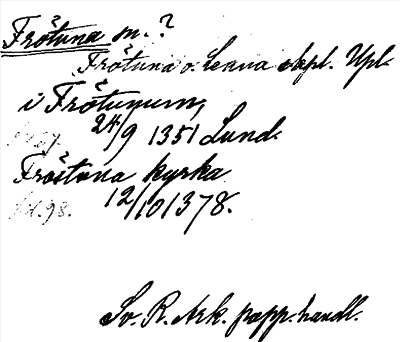 Fröštuna sn.?
Fröštuna o. Lenna skpl. Upl.
i Fröštunum,
24/9 1351 Lund.
Froštuna kyrka
12/10 1378.
Sv. R. Ark. papp. handl.